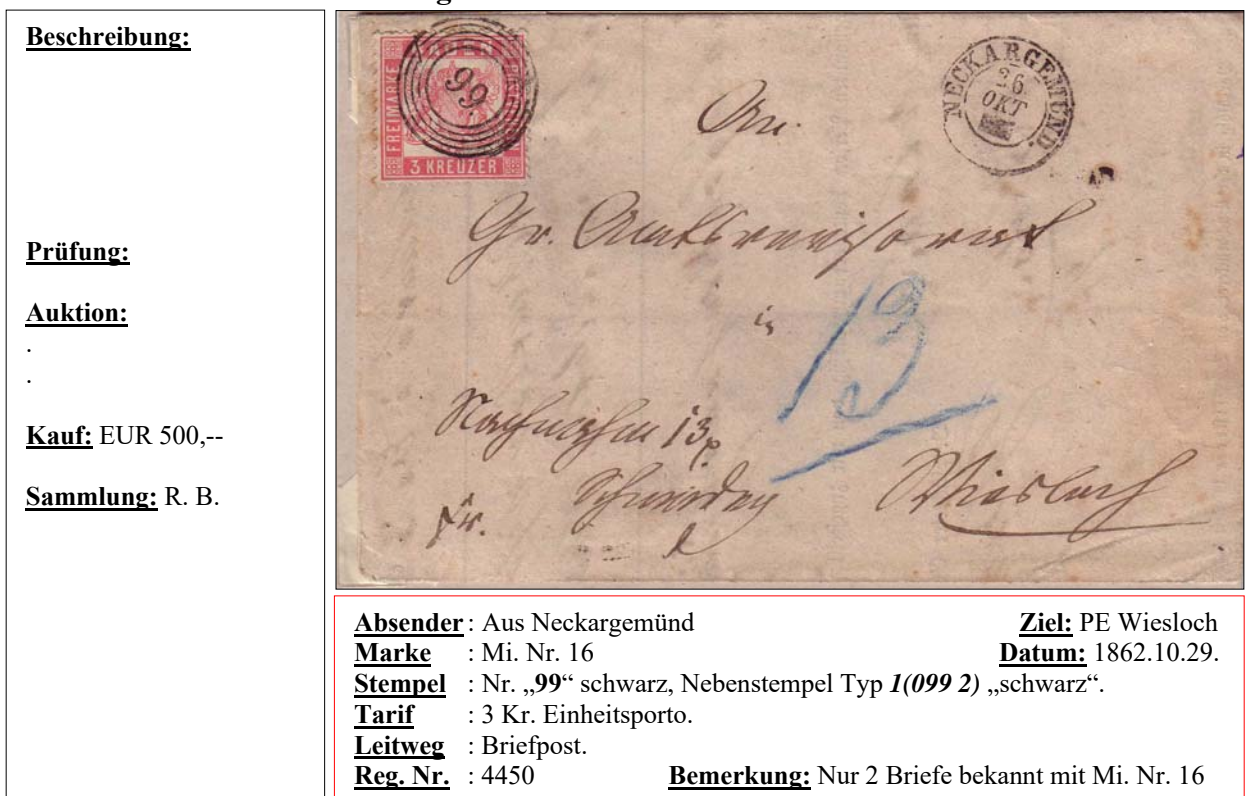 Beschreibung:
Prüfung:
Auktion:
.
.
Kauf: EUR 500,--
Sammlung: R. B.
BADEN
FREIMARKE
3 KREUZER
99
NECKARGEMÜND.
26
OKT
An
Gr. Amtsrevisorat
in
13
13
Wiesloch
fr.
Absender : Aus Neckargemünd Ziel: PE Wiesloch
Marke : Mi. Nr. 16 Datum: 1862.10.29.
Stempel : Nr. „99“ schwarz, Nebenstempel Typ 1(099 2) „schwarz“.
Tarif : 3 Kr. Einheitsporto.
Leitweg : Briefpost.
Reg. Nr. : 4450 Bemerkung: Nur 2 Briefe bekannt mit Mi. Nr. 16